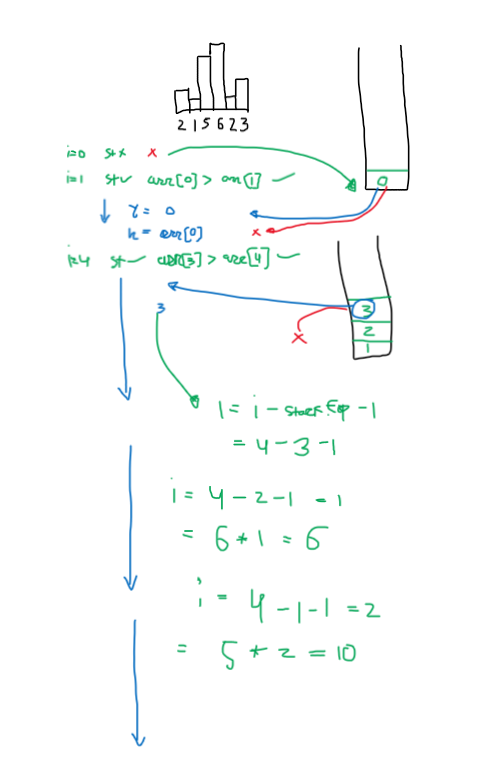 2 1 5 6 2 3
i=0 st x x
i=1 st✓ arr[0] > arr[1] ✓
0
r = 0
h = arr[0] x
i=4 st✓ arr[3] > arr[4] ✓
3
3
2
1
x
l = i - stack.top - 1
= 4 - 3 - 1
i = 4 - 2 - 1 = 1
= 6 * 1 = 6
i = 4 - 1 - 1 = 2
= 5 * 2 = 10